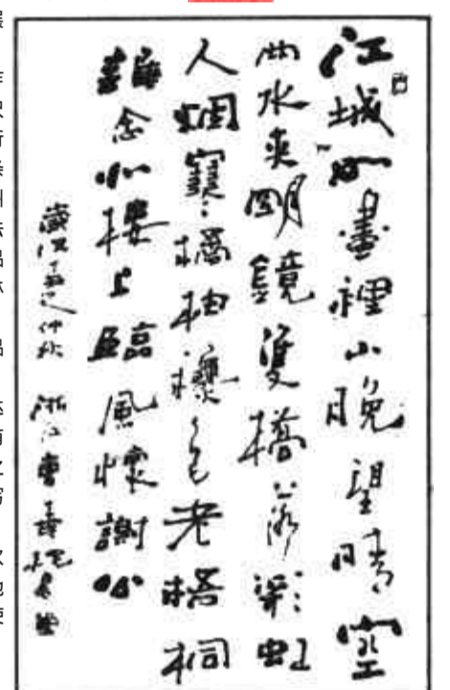 江城如畫裡山晚望晴空
兩水夾明鏡雙橋落彩虹
人烟寒橘柚秋色老梧桐
誰念北樓上臨風懷謝公
歲次之仲秋 浙江曹壽